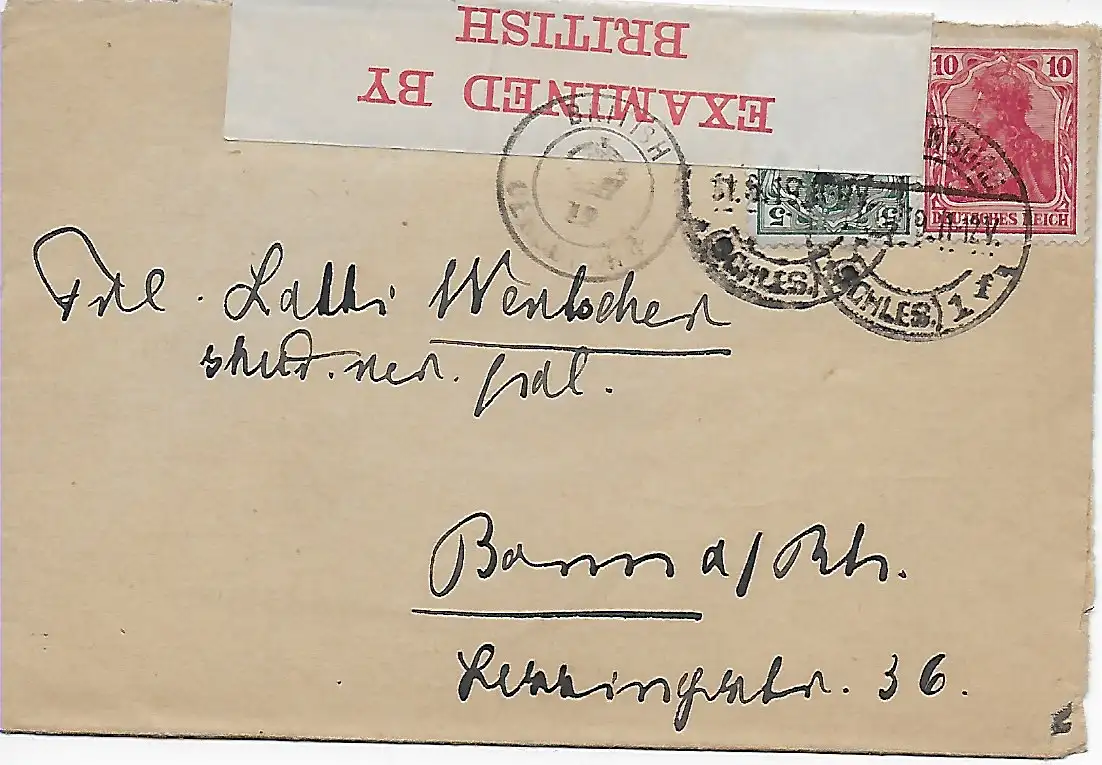 BRITISH
EXAMINED BY
10 10
DEUTSCHES REICH
5 5
BRITISH
(SCHLES.)
(SCHLES.) 1 f
Frl. Lotti Wentscher
stud. med. 
Bonn a/Rh.
Lessingstr. 36.